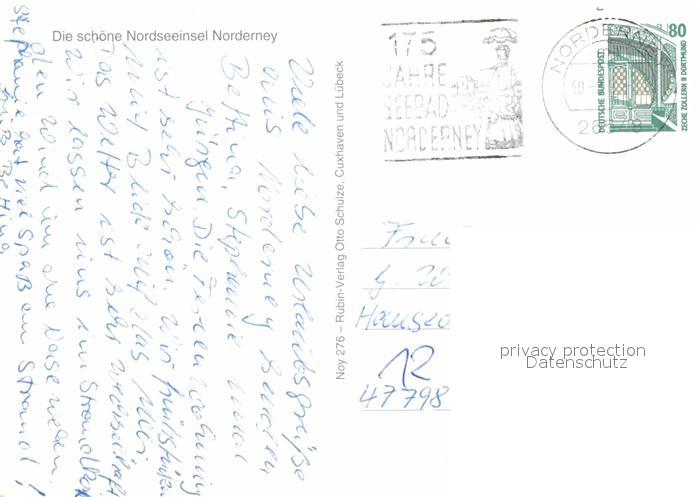 Die schöne Nordseeinsel Norderney
Viele liebe Urlaubsgrüße
aus Norderney senden
Bettina, Stephanie und
Jürgen. Die Ferienwohnung
ist sehr schön. Wir frühstücken
mit Blick auf das Meer.
Das Wetter ist sehr wechselhaft.
Wir lassen uns im Strandkorb
den Wind um die Nase wehen.
Stephanie hat viel Spaß am Strand!
Bettina
Noy 276 – Rubin-Verlag Otto Schulze, Cuxhaven und Lübeck
175
JAHRE
SEEBAD
NORDERNEY
NORDERNEY
80
DEUTSCHE BUNDESPOST
ZECHE ZOLLERN II DORTMUND
47798
privacy protection
Datenschutz